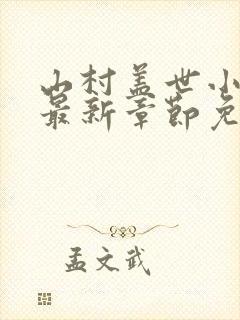 山村盖世小
最新章节免
孟文武